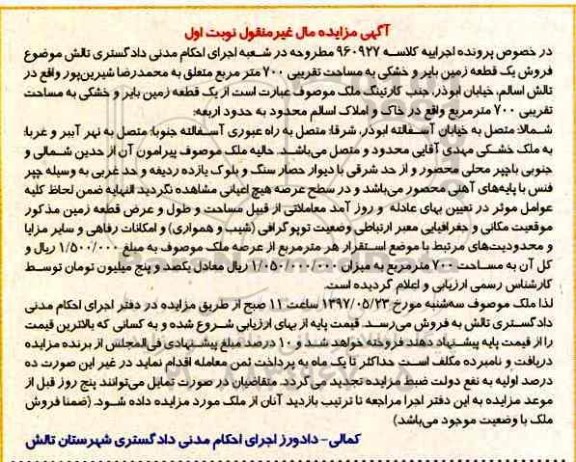 آگهی مزایده مال غیرمنقول نوبت اول
در خصوص پرونده اجراییه کلاسه ۹۶۰۹۲۷ مطروحه در شعبه اجرای احکام مدنی دادگستری تالش موضوع
فروش یک قطعه زمین بایر و خشکی به مساحت تقریبی ۷۰۰ متر مربع متعلق به محمدرضا شیرین‌پور واقع در
تالش اسالم، خیابان ابوذر، جنب کارتینگ ملک موصوف عبارت است از یک قطعه زمین بایر و خشکی به مساحت
تقریبی ۷۰۰ مترمربع واقع در خاک و املاک اسالم محدود به حدود اربعه:
شمالا: متصل به خیابان آسفالته ابوذر، شرقا: متصل به راه عبوری آسفالته جنوبا: متصل به نهر آببر و غربا:
به ملک خشکی مهدی آقایی محدود و متصل می‌باشد. حالیه ملک موصوف پیرامون آن از حدین شمالی و
جنوبی باچپر محلی محصور و از حد شرقی با دیوار حصار سنگ و بلوک یازده ردیفه و حد غربی به وسیله چپر
فنس با پایه‌های آهنی محصور می‌باشد و در سطح عرصه هیچ اعیانی مشاهده نگردید النهایه ضمن لحاظ کلیه
عوامل موثر در تعیین بهای عادله و روز آمد معاملاتی از قبیل مساحت و طول و عرض قطعه زمین مذکور
موقعیت مکانی و جغرافیایی معبر ارتباطی وضعیت توپوگرافی (شیب و همواری) و امکانات رفاهی و سایر مزایا
و محدودیت‌های مرتبط با موضع استقرار هر مترمربع از عرصه ملک موصوف به مبلغ ۱/۵۰۰/۰۰۰ ریال و
کل آن به مساحت ۷۰۰ مترمربع به میزان ۱/۰۵۰/۰۰۰/۰۰۰ ریال معادل یکصد و پنج میلیون تومان توسط
کارشناس رسمی ارزیابی و اعلام گردیده است.
لذا ملک موصوف سه‌شنبه مورخ ۱۳۹۷/۰۵/۲۳ ساعت ۱۱ صبح از طریق مزایده در دفتر اجرای احکام مدنی
دادگستری تالش به فروش می‌رسد. قیمت پایه از بهای ارزیابی شروع شده و به کسانی که بالاترین قیمت
را از قیمت پایه پیشنهاد دهند فروخته خواهد شد و ۱۰ درصد مبلغ پیشنهادی فی‌المجلس از برنده مزایده
دریافت و نامبرده مکلف است حداکثر تا یک ماه به پرداخت ثمن معامله اقدام نماید در غیر این صورت ده
درصد اولیه به نفع دولت ضبط مزایده تجدید می گردد. متقاضیان در صورت تمایل می‌توانند پنج روز قبل از
موعد مزایده به این دفتر اجرا مراجعه تا ترتیب بازدید آنان از ملک مورد مزایده داده شود. (ضمنا فروش
ملک با وضعیت موجود می‌باشد)
کمالی- دادورز اجرای احکام مدنی دادگستری شهرستان تالش